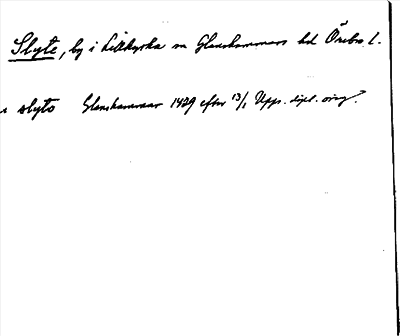 Slyte, by i Lillkyrka sn Glanshammars hd Örebro l.
i slyto Glanshammar 1429 efter 13/1 Upps. dipl. orig.